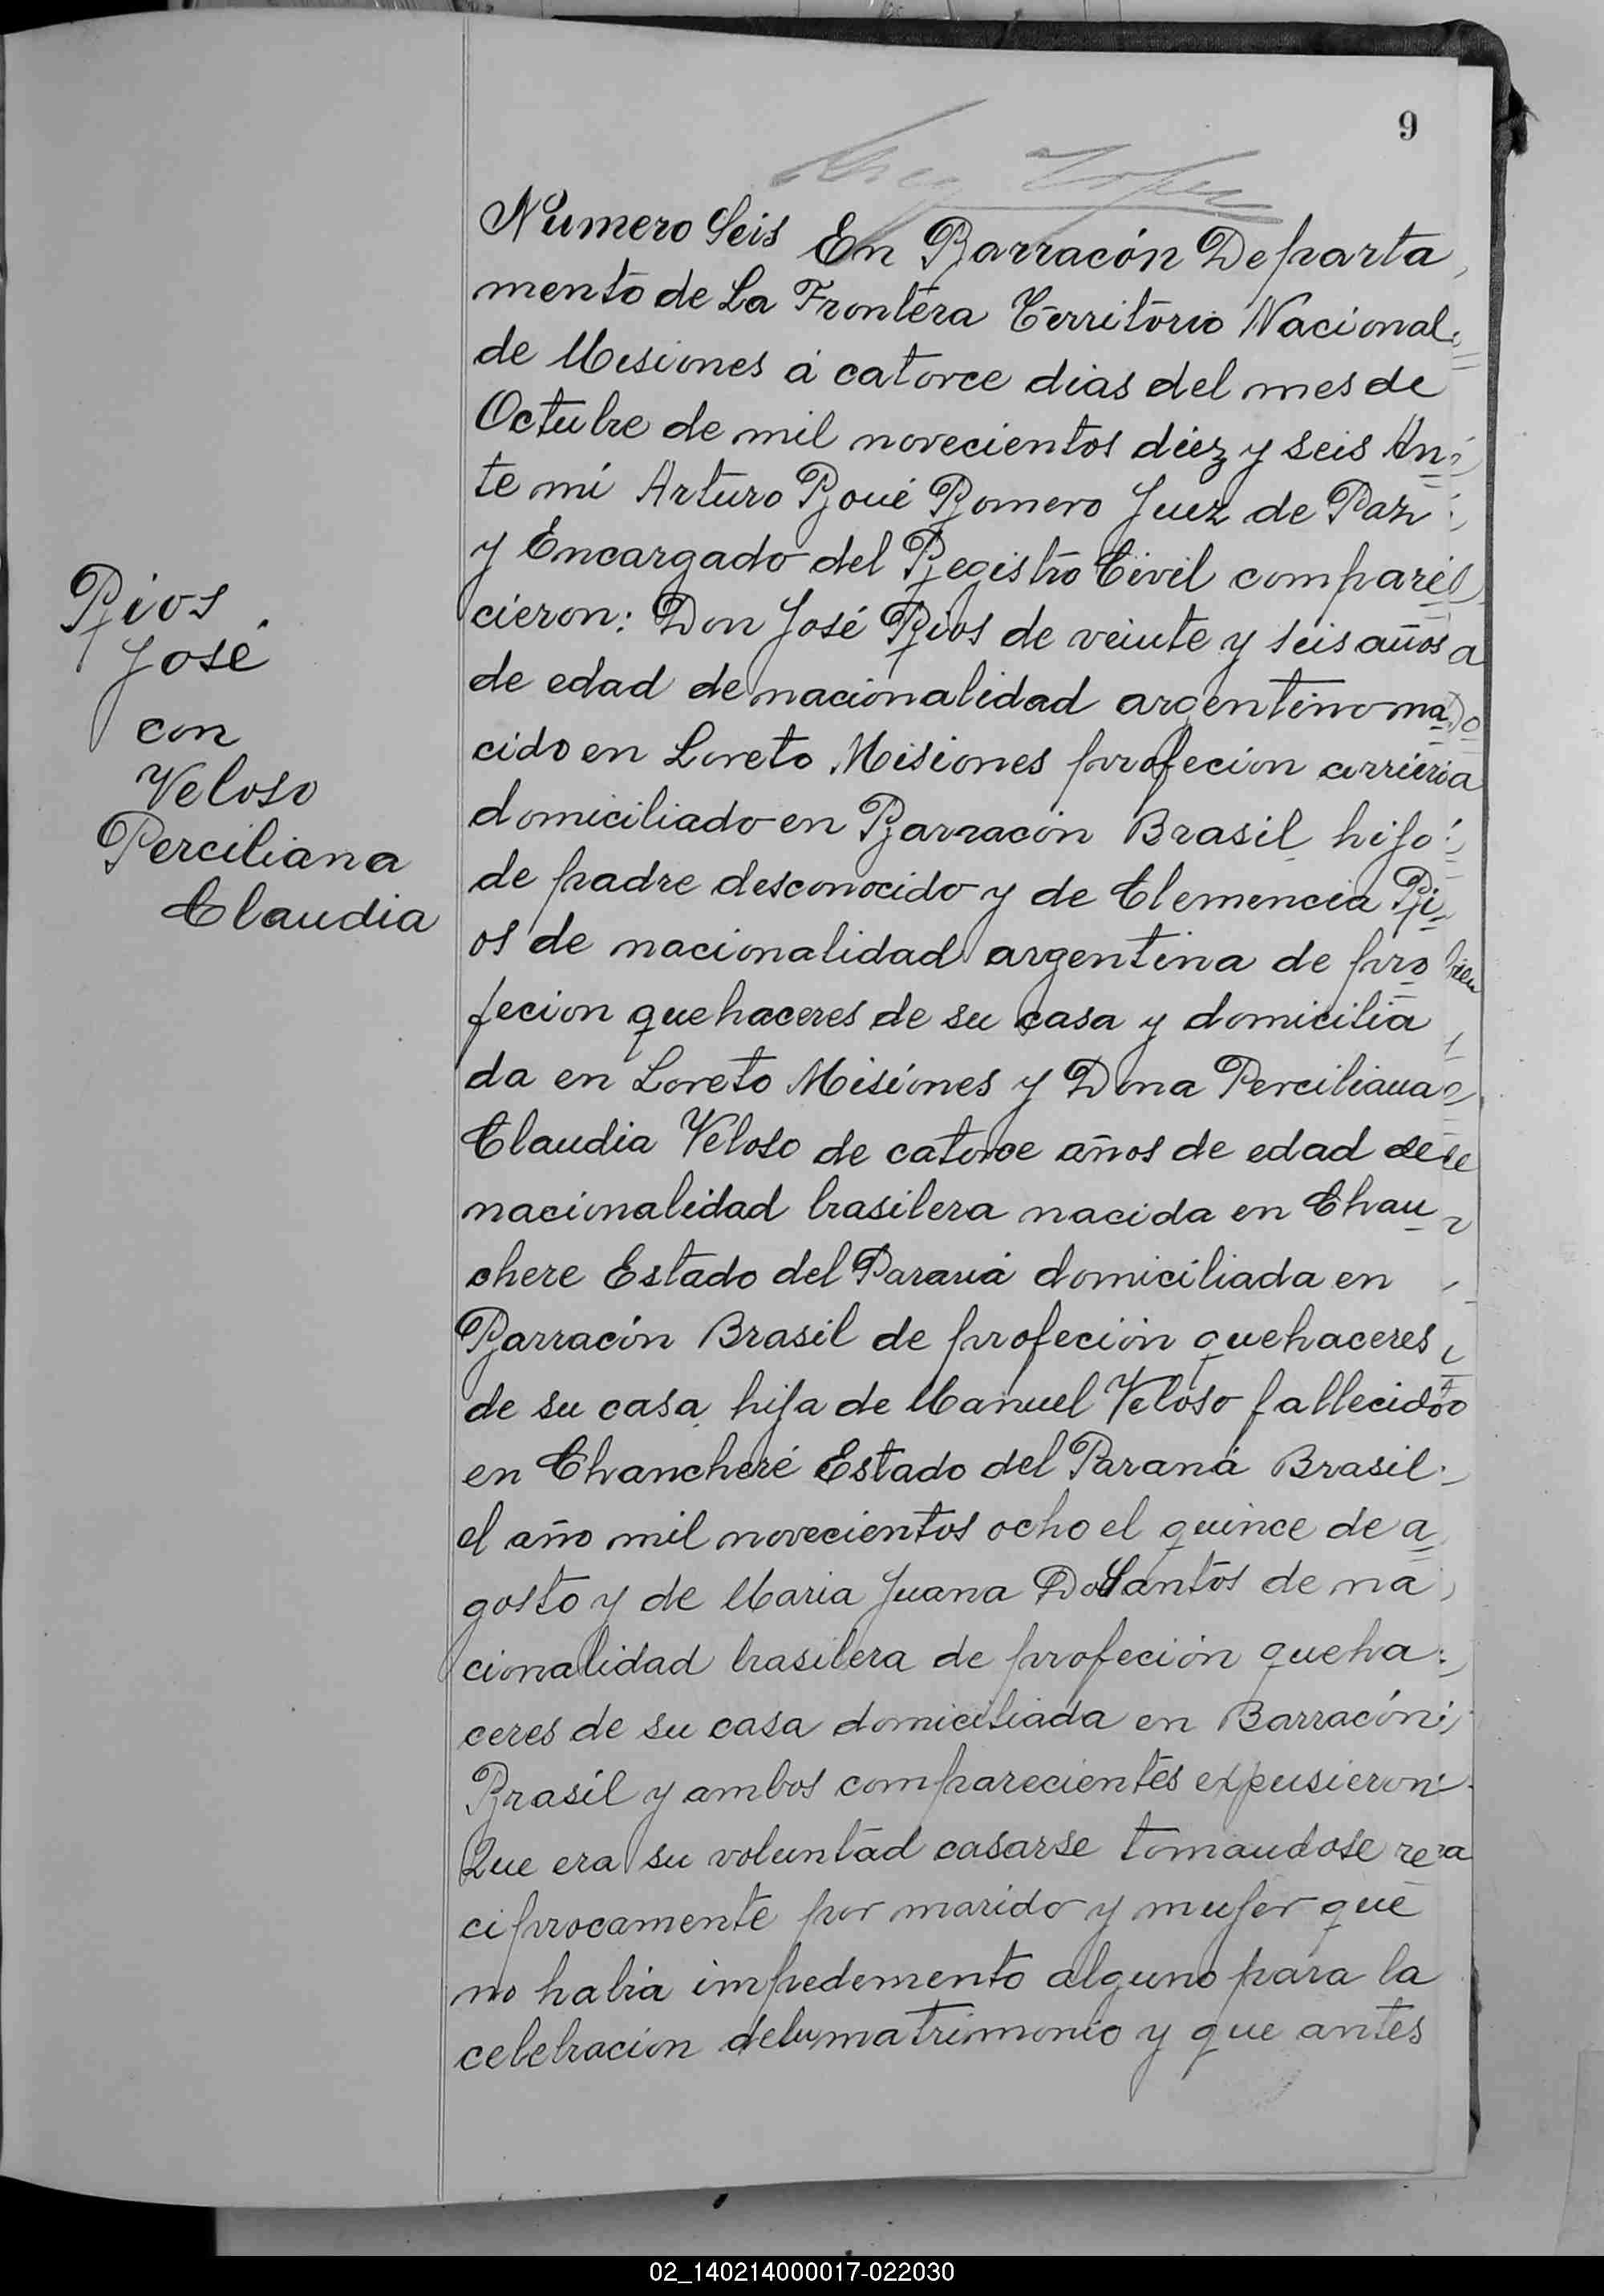 9
Numero Seis En Barracón Departa
mento de La Frontera Territorio Nacional
de Misiones á catorce dias del mes de
Octubre de mil novecientos diez y seis An
te mi Arturo Roué Romero Juez de Paz
y Encargado del Registro Civil compare
cieron: Don José Rios de veinte y seis años
de edad de nacionalidad argentino na
cido en Loreto Misiones profecion
domiciliado en Barracón Brasil hijo
de padre desconocido y de Clemencia Ri
os de nacionalidad argentina de pro
fecion quehaceres de su casa y domicilia
da en Loreto Misiones y Dona Perciliana
Claudia Veloso de catorce años de edad de
nacionalidad brasilera nacida en Chan
chere Estado del Paraná domiciliada en
Barracón Brasil de profeción quehaceres
de su casa hija de Manuel Veloso fallecido
en Chancheré Estado del Paraná Brasil
el año mil novecientos ocho el quince de a
gosto y de Maria Juana DoSantos de na
cionalidad brasilera de profeción queha
ceres de su casa domiciliada en Barracón
Brasil y ambos comparecientes expusieron
Que era su voluntad casarse tomandose re
ciprocamente por marido y mujer que
no habia impedemento alguno para la
celebracion matrimonio y que antes
Rios
José
con
Veloso
Perciliana
Claudia
02_140214000017-022030